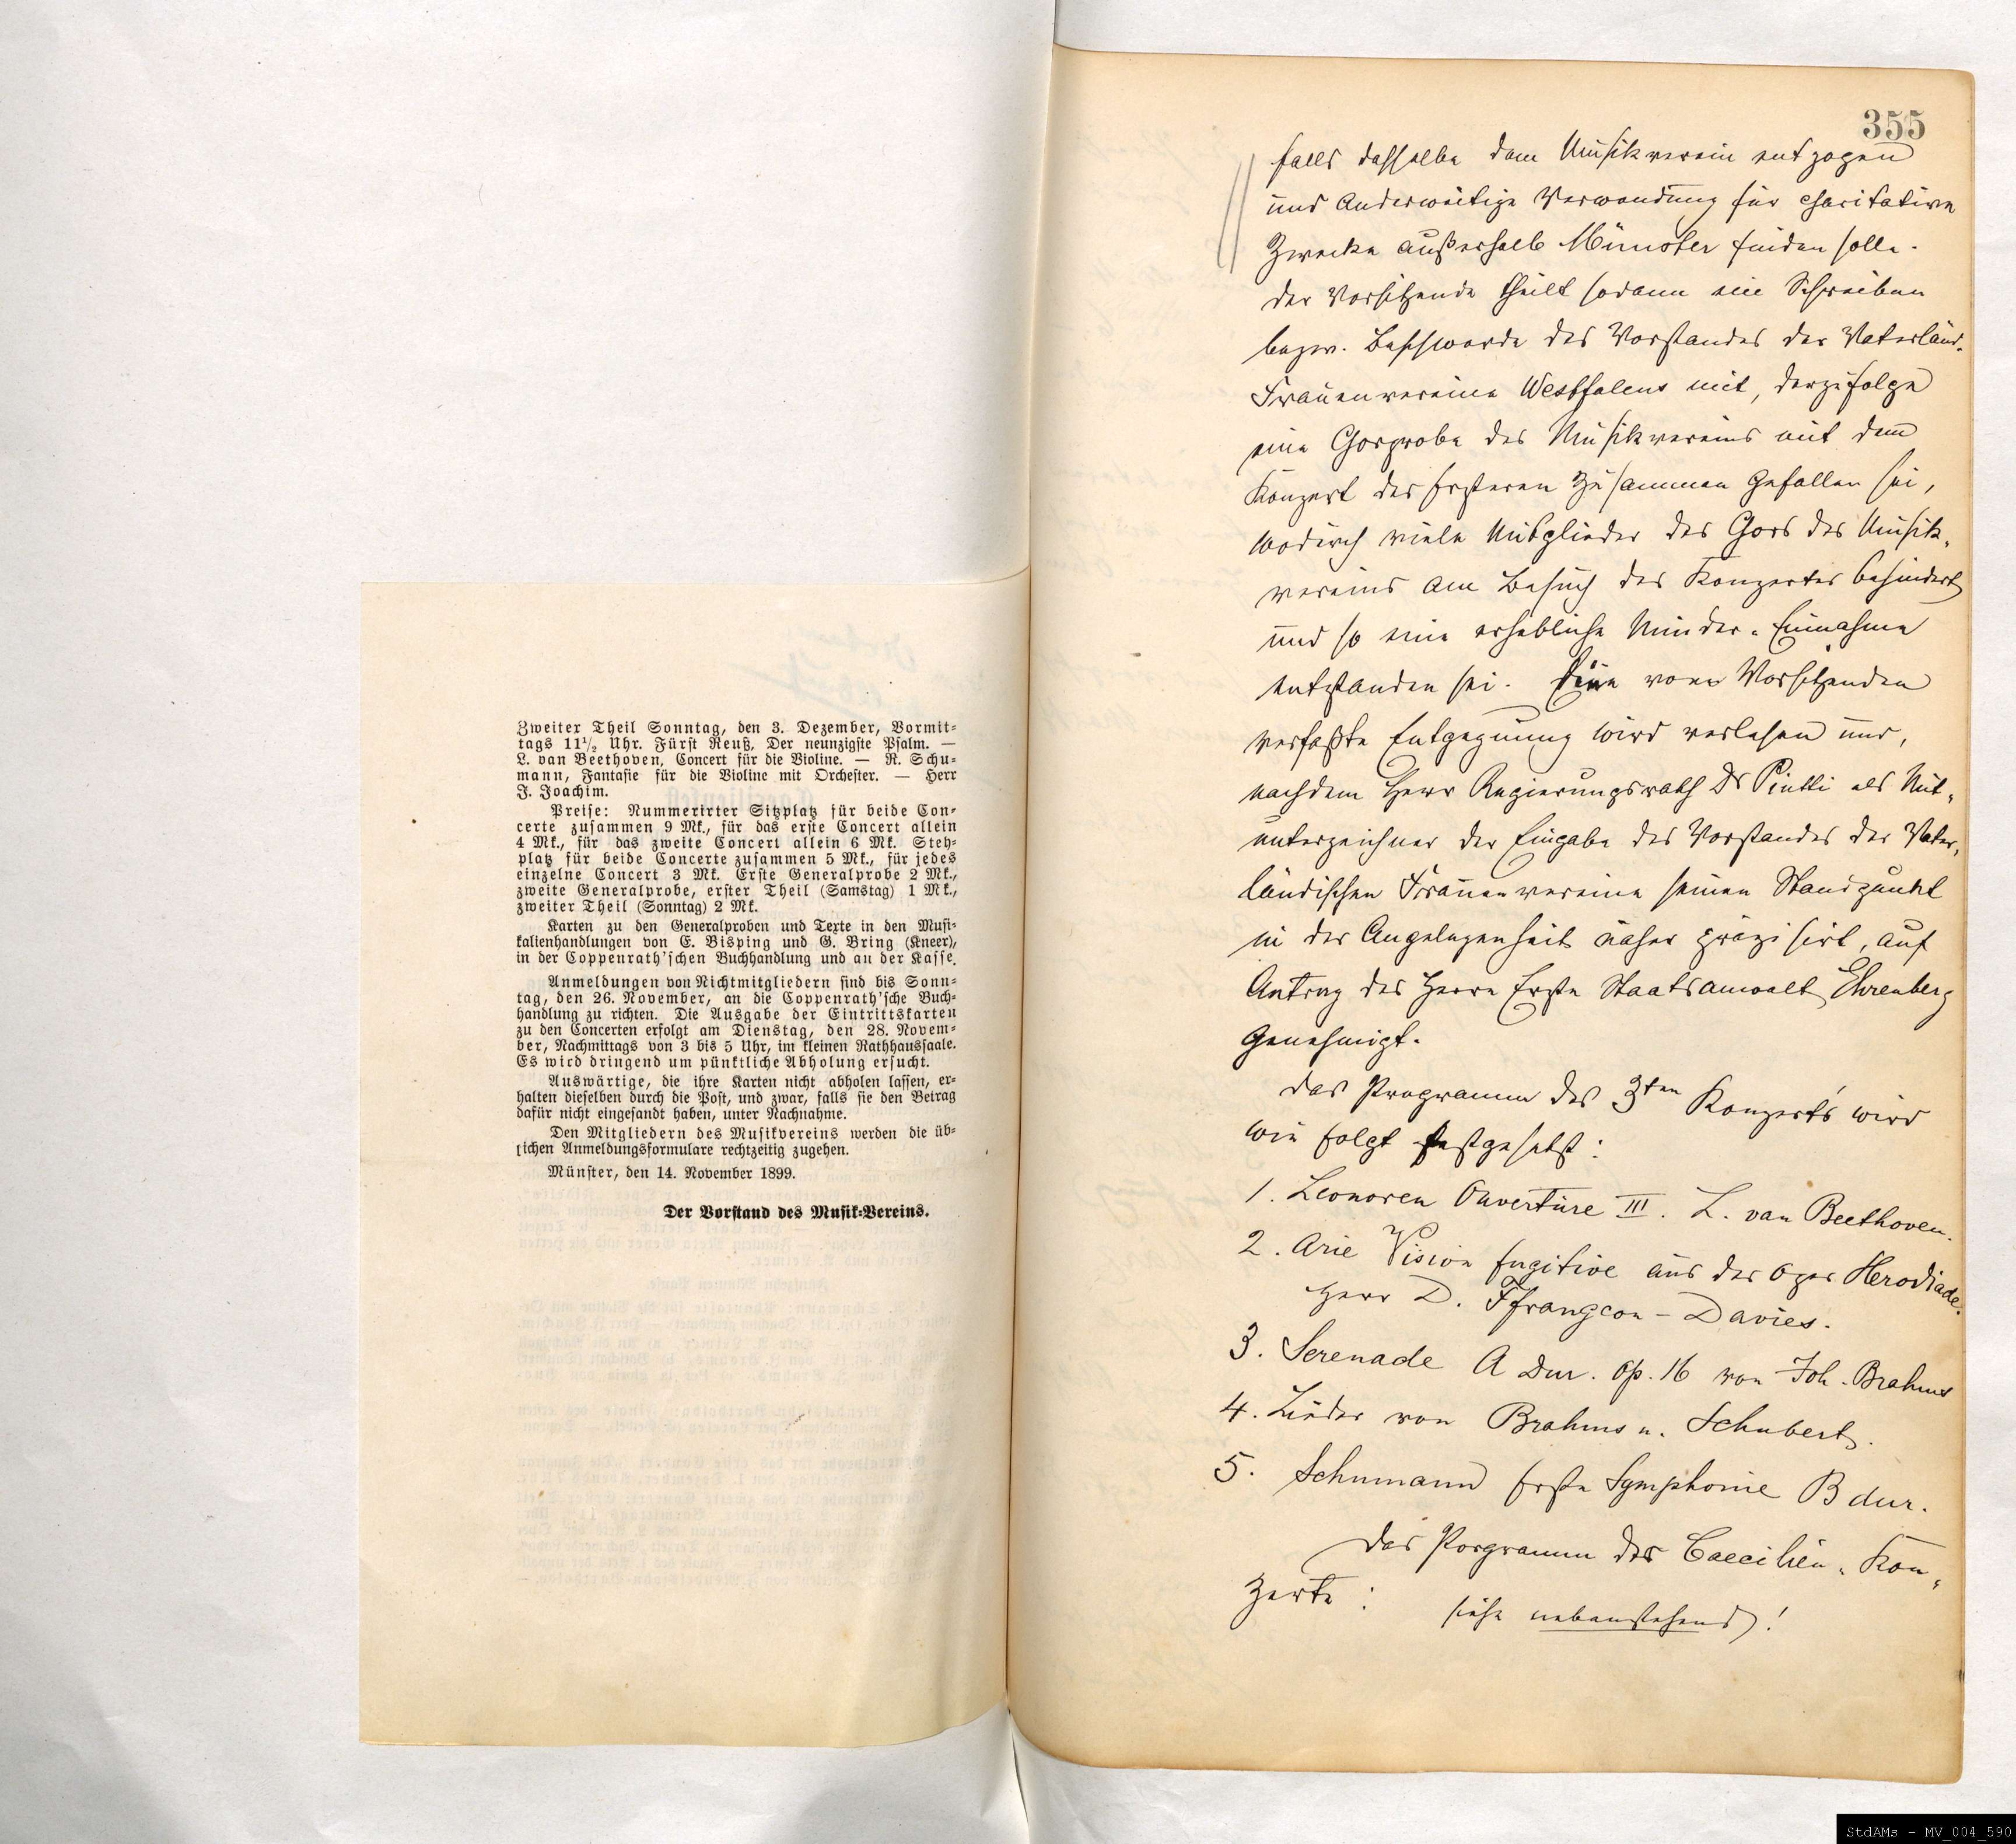 Zweiter Theil Sonntag, den 3. Dezember, Vormit-
tags 11½ Uhr. Fürst Reuß, Der neunzigste Psalm. —
L. van Beethoven, Concert für die Violine. — R. Schu-
mann, Fantasie für die Violine mit Orchester. — Herr
J. Joachim.
Preise: Nummerirter Sitzplatz für beide Con-
certe zusammen 9 Mk., für das erste Concert allein
4 Mk., für das zweite Concert allein 6 Mk. Steh-
platz für beide Concerte zusammen 5 Mk., für jedes
einzelne Concert 3 Mk. Erste Generalprobe 2 Mk.,
zweite Generalprobe, erster Theil (Samstag) 1 Mk.,
zweiter Theil (Sonntag) 2 Mk.
Karten zu den Generalproben und Texte in den Musi-
kalienhandlungen von E. Bisping und G. Bring (Kneer),
in der Coppenrath'schen Buchhandlung und an der Kasse.
Anmeldungen von Nichtmitgliedern sind bis Sonn-
tag, den 26. November, an die Coppenrath'sche Buch-
handlung zu richten. Die Ausgabe der Eintrittskarten
zu den Concerten erfolgt am Dienstag, den 28. Novem-
ber, Nachmittags von 3 bis 5 Uhr, im kleinen Rathhaussaale.
Es wird dringend um pünktliche Abholung ersucht.
Auswärtige, die ihre Karten nicht abholen lassen, er-
halten dieselben durch die Post, und zwar, falls sie den Betrag
dafür nicht eingesandt haben, unter Nachnahme.
Den Mitgliedern des Musikvereins werden die üb-
lichen Anmeldungsformulare rechtzeitig zugehen.
Münster, den 14. November 1899.
Der Vorstand des Musik-Vereins.
355
falls dasselbe dem Musikverein entzogen
und anderweitige Verwendung für charitative
Zwecke außerhalb Münster finden solle.
Der Vorsitzende theilt sodann ein Schreiben
bezw. Beschwerde des Vorstandes der Vaterländ.
Frauenvereine Westfalens mit, derzufolge
eine Chorprobe des Musikvereins mit dem
Konzert des Ersteren zusammen gefallen sei,
wodurch viele Mitglieder des Chors des Musik-
vereins am Besuch des Konzertes behindert
und so eine erhebliche Minder-Einnahme
entstanden sei. Eine vom Vorsitzenden
verfaßte Entgegnung wird verlesen und,
nachdem Herr Regierungsrath Dr Piutti als Mit-
unterzeichner der Eingabe des Vorstandes der Vater-
ländischen Frauenvereine seinen Standpunkt
in der Angelegenheit näher präzisirt, auf
Antrag des Herrn Erste Staatsanwalt Ehrenberg
genehmigt.
Das Programm des 3ten Konzerts wird
wie folgt festgesetzt:
1. Leonoren Ouvertüre III. L. van Beethoven.
2. Arie Vision fugitive aus der Oper Herodiade.
Herr D. Ffrangcon-Davies.
3. Serenade A Dur. Op. 16 von Joh. Brahms
4. Lieder von Brahms u. Schubert.
5. Schumann Erste Symphonie B dur.
Das Porgramm der Caecilien-Kon-
zerte: siehe nebenstehend!
StdAMs - MV_004_590